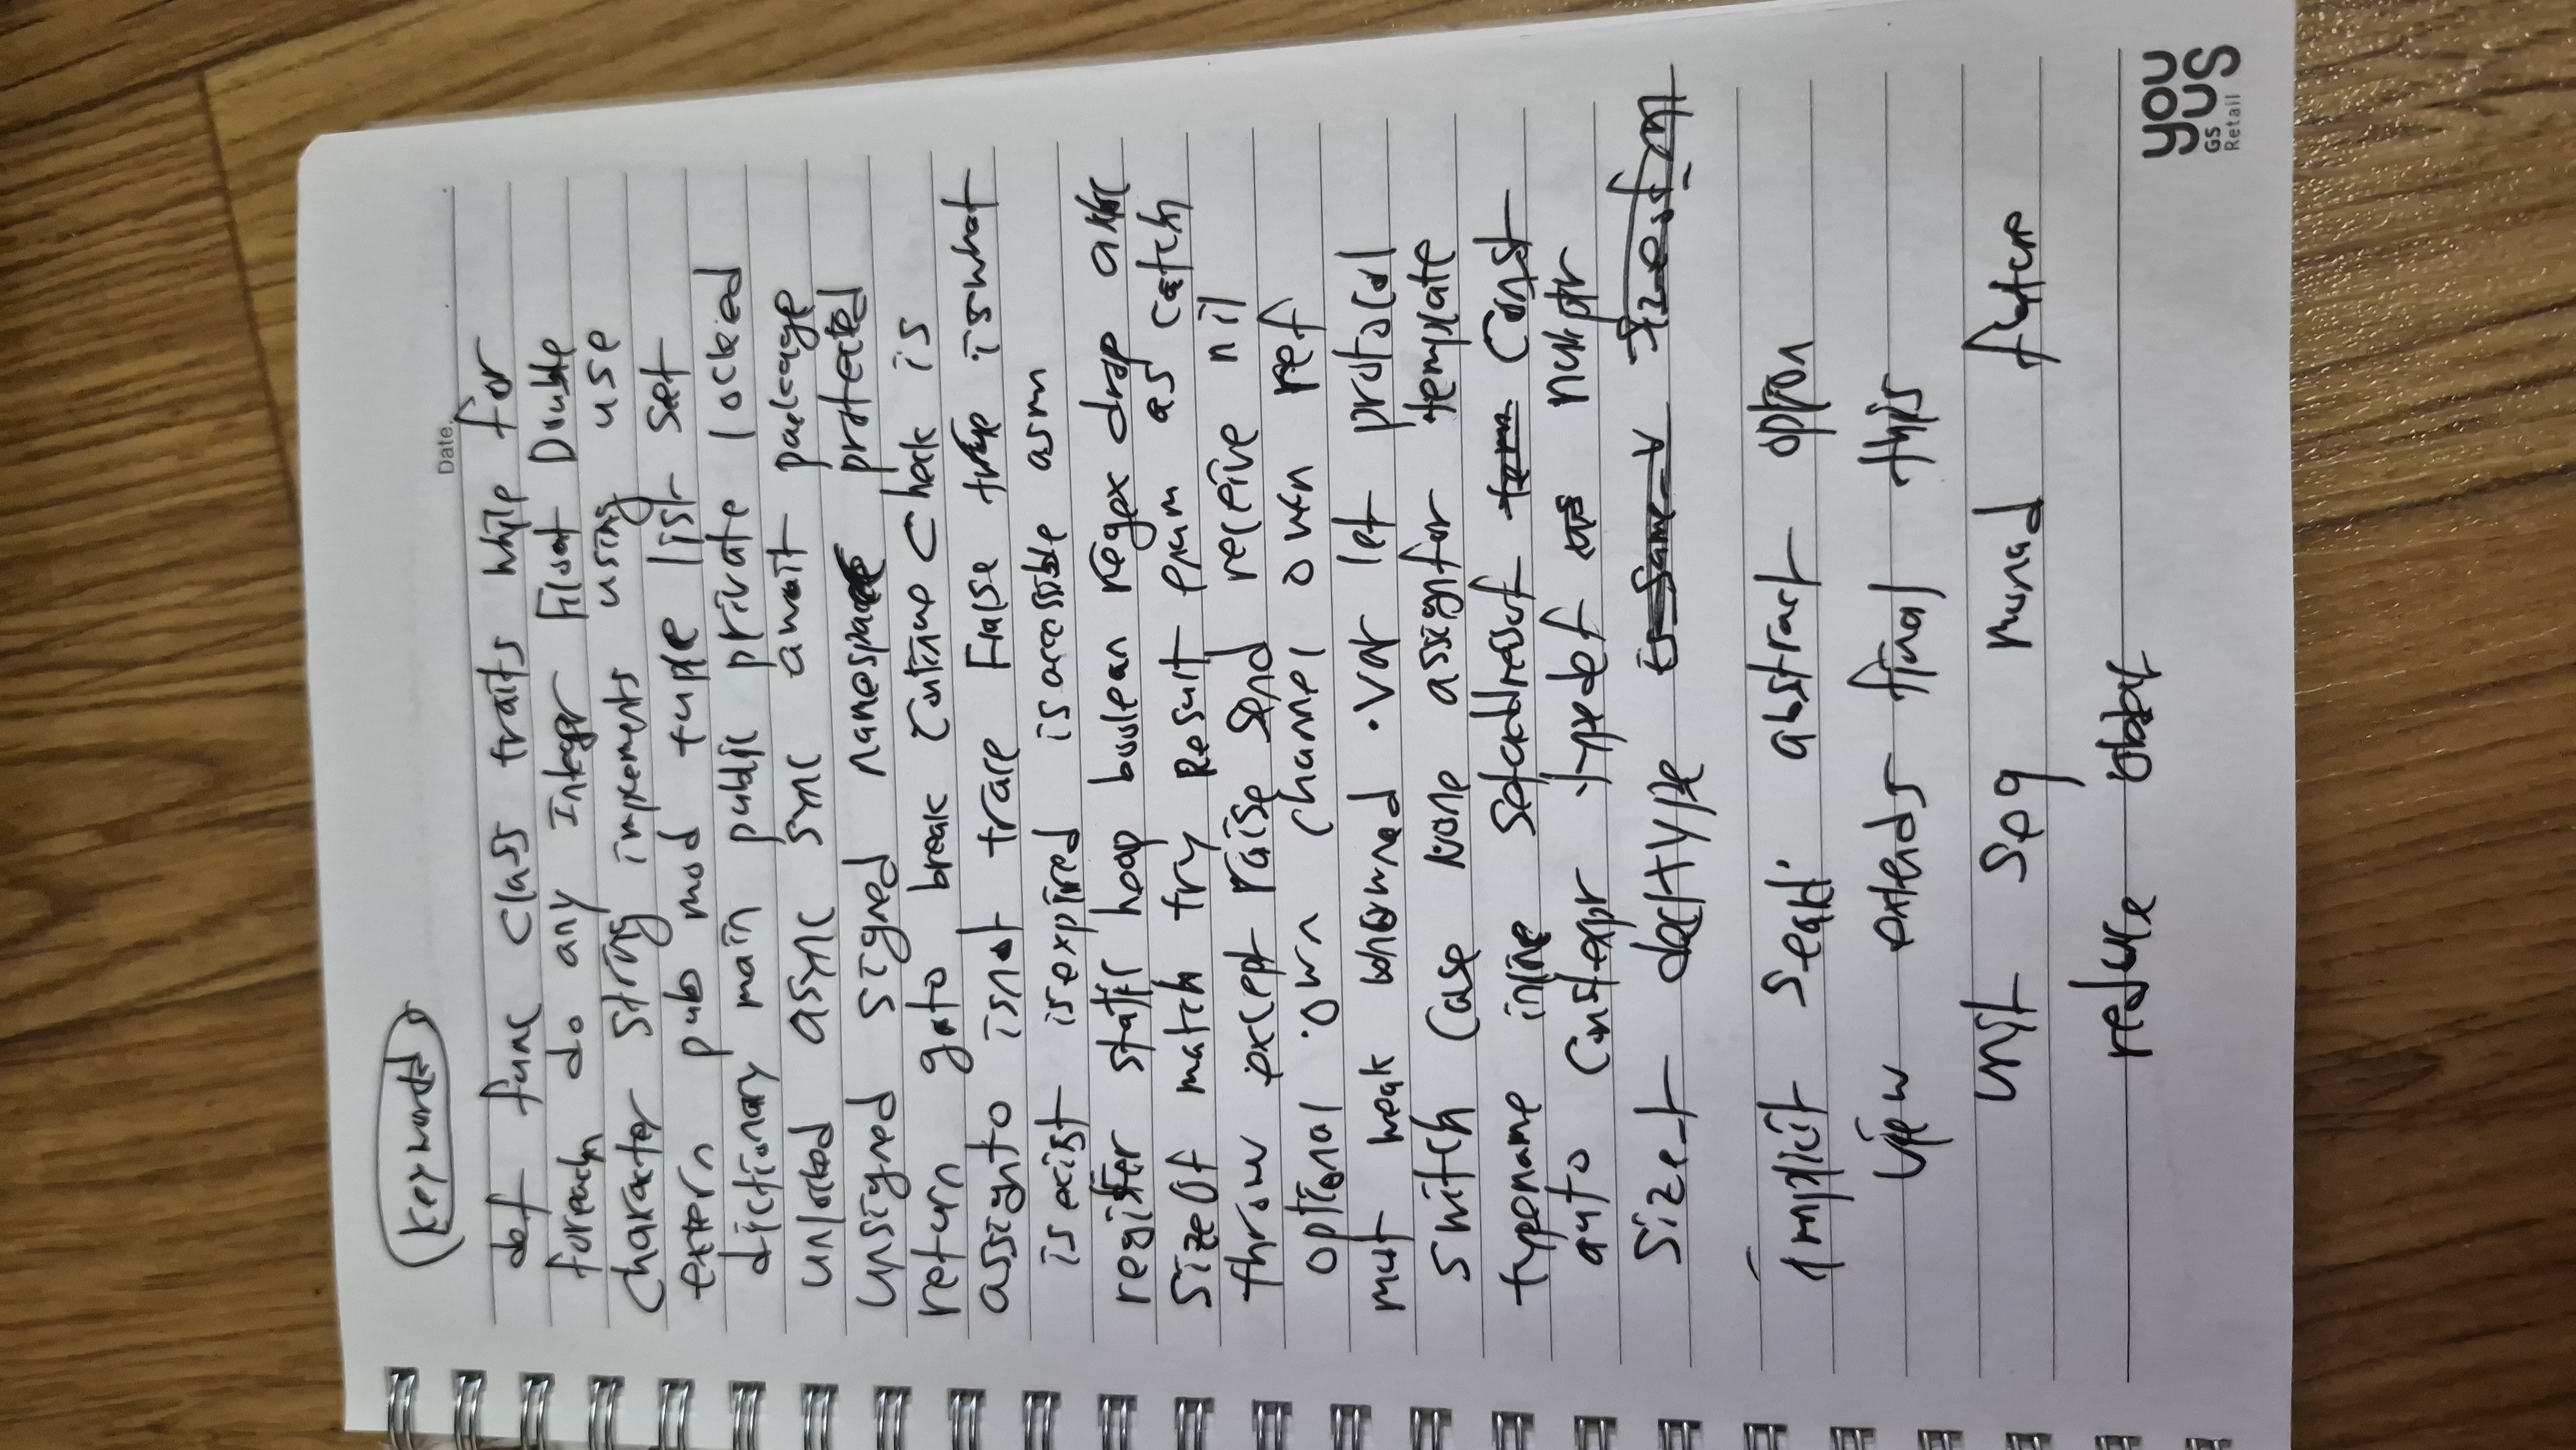 Keywords
Date.
def func class traits while for
foreach do any Integer Float Double
character string implements using use
extern pub mod tuple list set
dictionary main public private locked
unlocked async sync await package
unsigned signed namespace protected
return goto break continue check is
assignto isnot trace False true iswhat
isexist isexpired isaccessible asm
register static heap boolean regex drop
sizeOf match try Result enum as catch
throw except raise send receive nil
optional own channel ref
mut weak var let protocol
switch case None assignfor template
typename inline setaddressof term const
auto constexpr typedef nullptr
size_t decltype is_same_v
implicit abstract option
view extends final this
unit seq monad future
reduce
you
us
GS
Retail